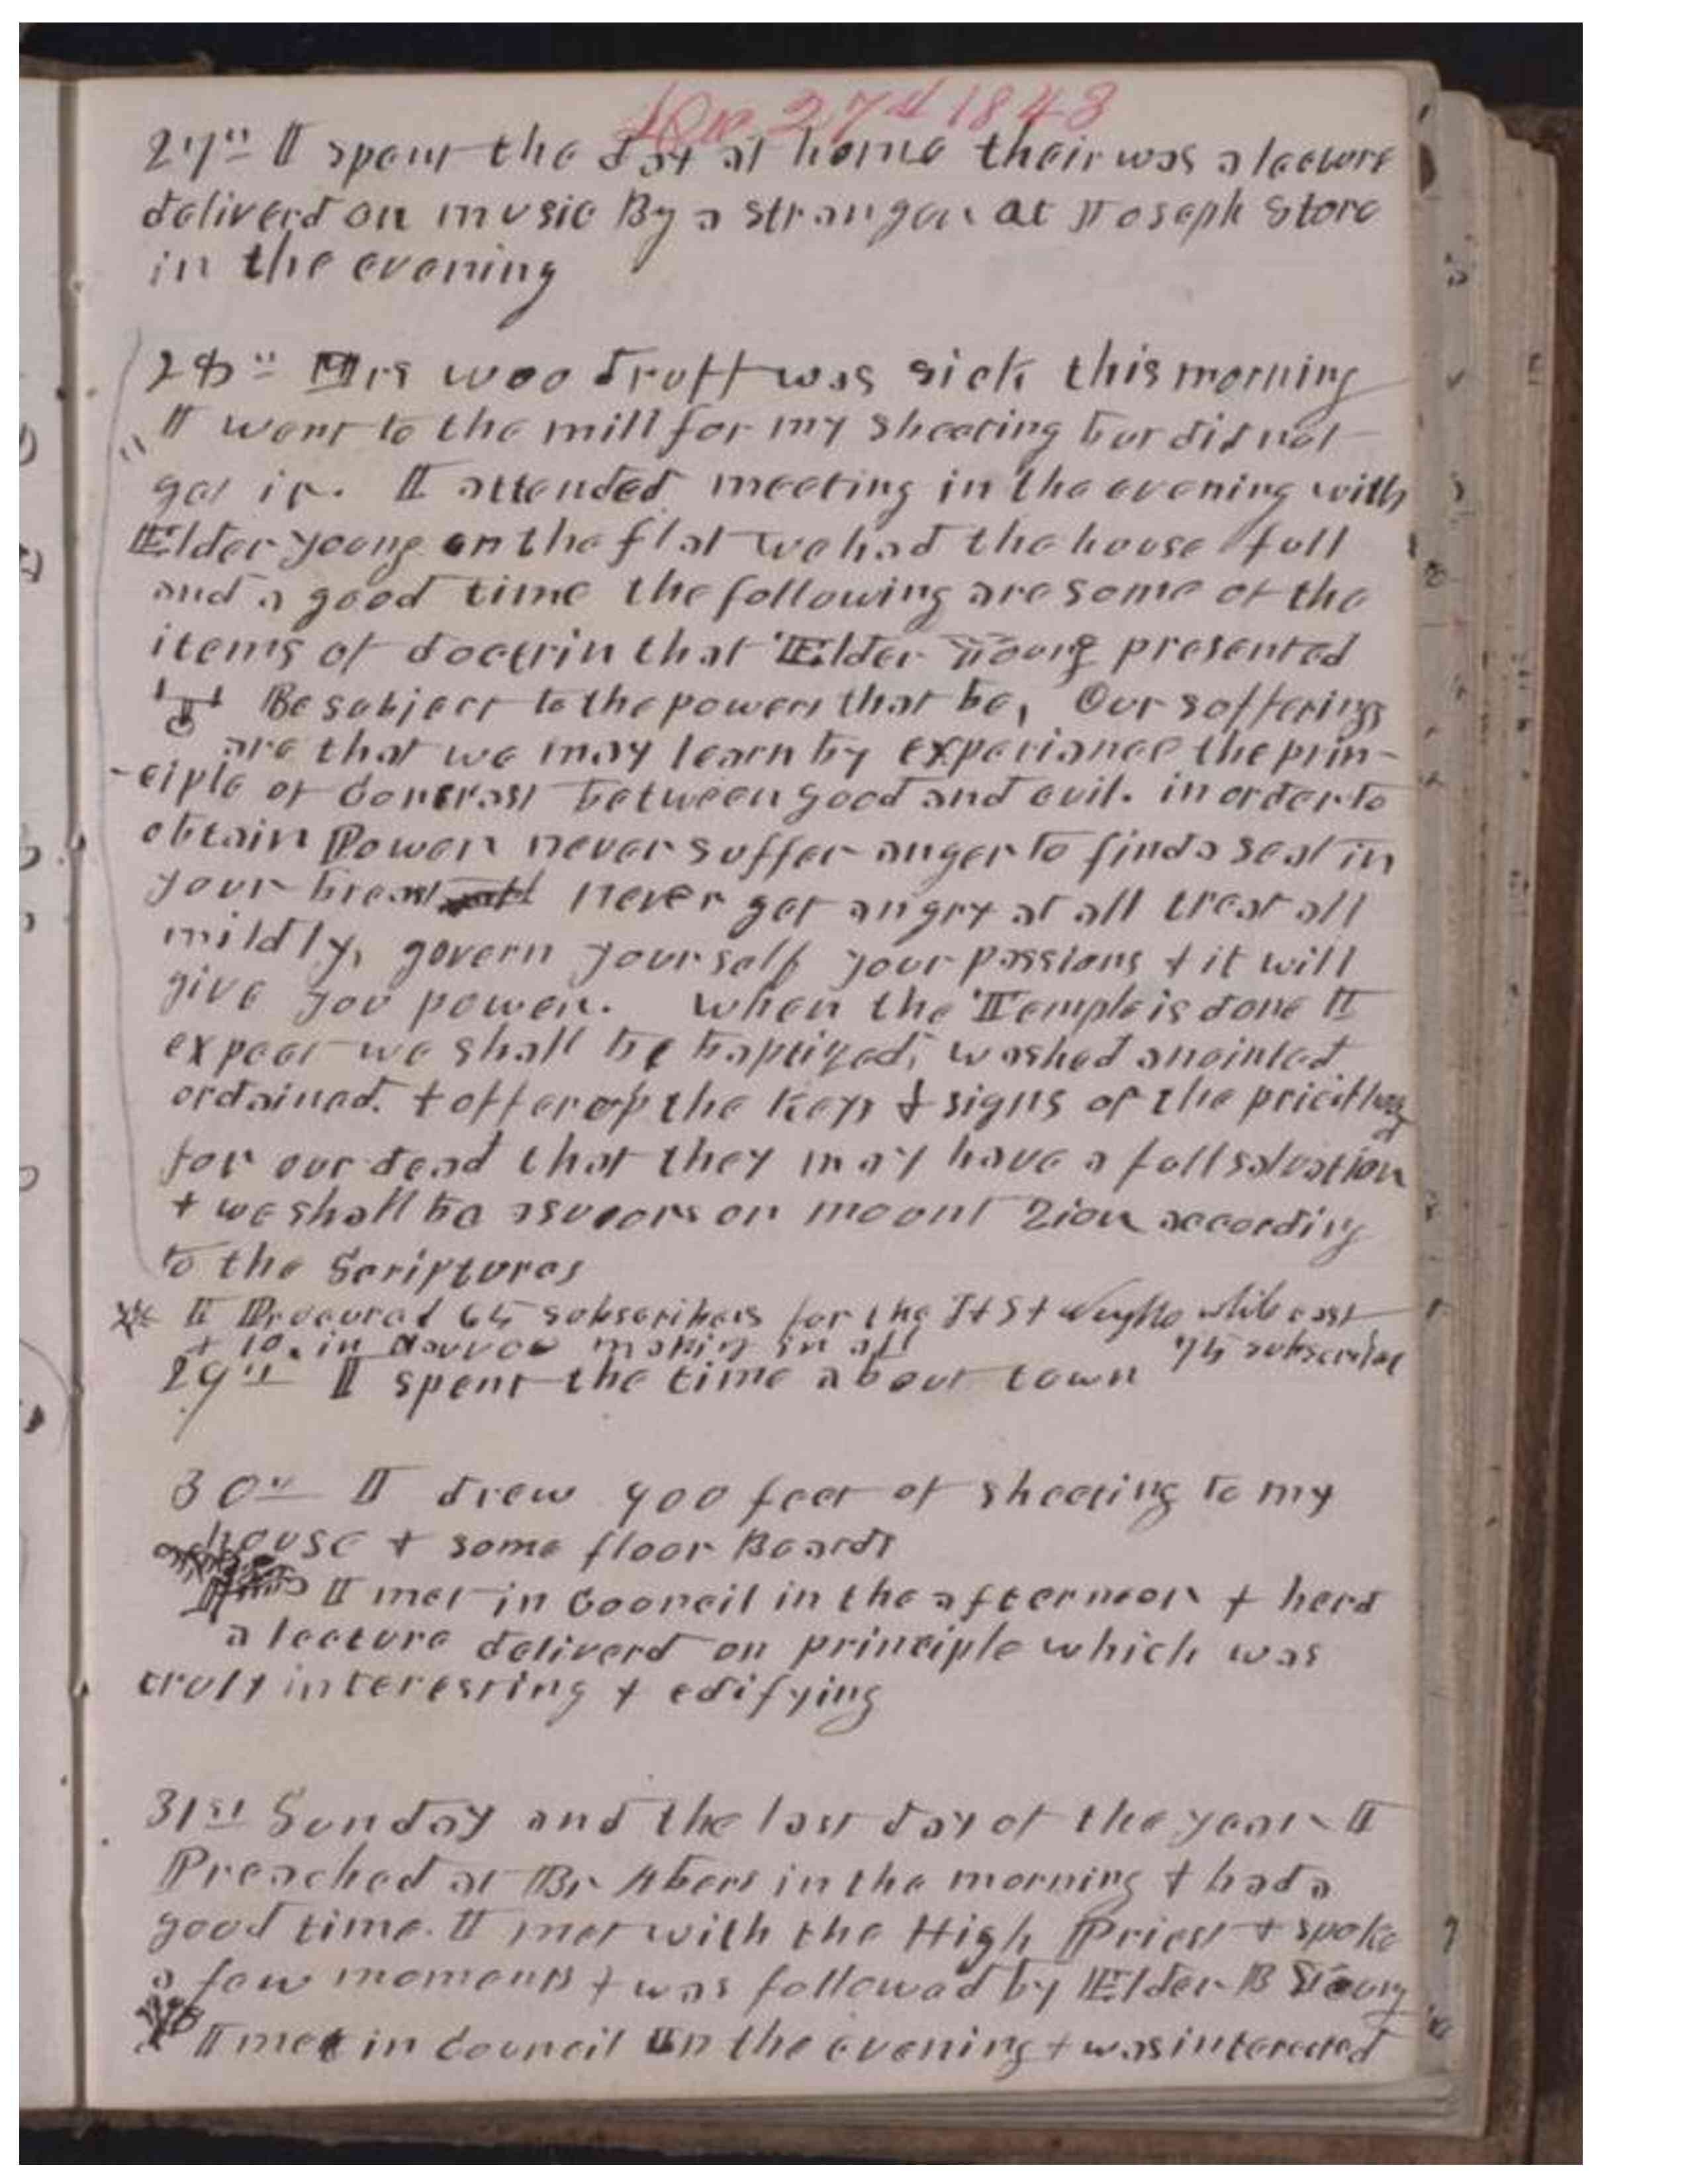 Dec 27th 1843
27th I spent the day at home their was a lecture
deliverd on music By a stranger at Joseph Store
in the evening
28th Mrs Woodruff was sick this morning
I went to the mill for my sheeting but did not
get it. I attended meeting in the evening with
Elder Young on the flat we had the house full
and a good time the following are some of the
items of doctrin that Elder Young presented
Be subject to the powers that be, Our sufferings
are that we may learn by experiance the prin-
-ciple of Contrast between good and evil. in order to
obtain Power never suffer anger to find a seat in
your breast never get angry at all treat all
mildly, govern yourself your passions + it will
give you power. When the Temple is done I
expect we shall be baptized, washed anointed
ordained. + offer up the keys & signs of the priesthood
for our dead that they may have a full salvation
+ we shall be as saviors on mount Zion according
to the Scriptures
I Procured 65 subscribers for the T+S+ while east
+ 10 in Nauvoo making in all
75 subscribers
29th I spent the time about town
30th I drew 900 feet of sheeting to my
house + some floor Boards
I met in Council in the afternoon + herd
a lecture deliverd on principle which was
truly interesting + edifying
31st Sunday and the last day of the year I
Preached at Br Abers in the morning + had a
good time. I met with the High Priest + spoke
a few moments + was followed by Elder B Young
I met in Council in the evening + was interested